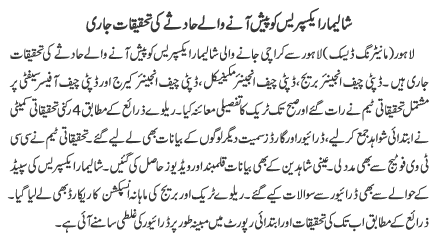 شالیمار ایکسپریس کو پیش آنے والے حادثے کی تحقیقات جاری
لاہور (مانیٹرنگ ڈیسک) لاہور سے کراچی جانے والی شالیمار ایکسپریس کو پیش آنے والے حادثے کی تحقیقات
جاری ہیں۔ ڈپٹی چیف انجینئر بریج، ڈپٹی چیف انجینئر مکینیکل، ڈپٹی چیف انجینئر کیرج اور ڈپٹی چیف آفیسر سیفٹی پر
مشتمل تحقیقاتی ٹیم نے رات گئے اور صبح تک ٹریک کا تفصیلی معائنہ کیا۔ ریلوے ذرائع کے مطابق 4 رکنی تحقیقاتی کمیٹی
نے ابتدائی شواہد جمع کر لیے، ڈرائیور اور گارڈز سمیت دیگر لوگوں کے بیانات بھی لے لیے گئے۔ تحقیقاتی ٹیم نے سی سی
ٹی وی فوٹیج سے بھی مدد لی۔ عینی شاہدین کے بھی بیانات قلمبند اور ویڈیوز حاصل کی گئیں۔ شالیمار ایکسپریس کی سپیڈ
کے حوالے سے بھی ڈرائیور سے سوالات کیے گئے۔ ریلوے ٹریک اور بریج کی ماہانہ انسپکشن کا ریکارڈ بھی لے لیا گیا۔
ذرائع کے مطابق اب تک کی تحقیقات اور ابتدائی رپورٹ میں مبینہ طور پر ڈرائیور کی غلطی سامنے آئی ہے۔